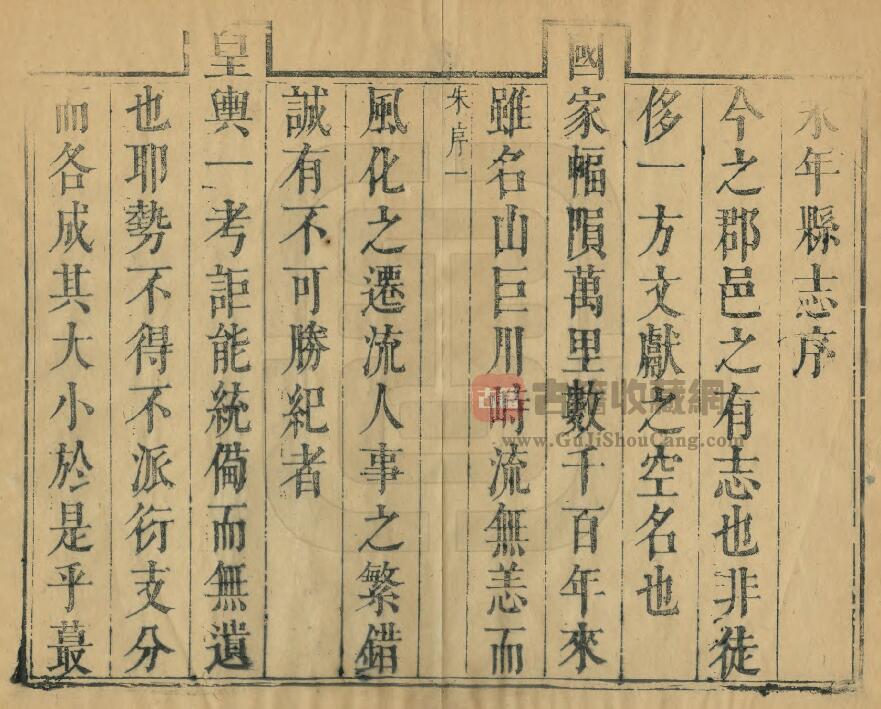 永年縣志序
今之郡邑之有志也非徒
侈一方文獻之空名也
國家幅隕萬里數千百年來
雖名山巨川峙流無恙而
朱序一
風化之遷流人事之繁錯
誠有不可勝紀者
皇輿一考詎能統僃而無遺
也耶勢不得不派衍支分
而各成其大小於是乎蕞
古籍收藏網
www.GuJiShouCang.com